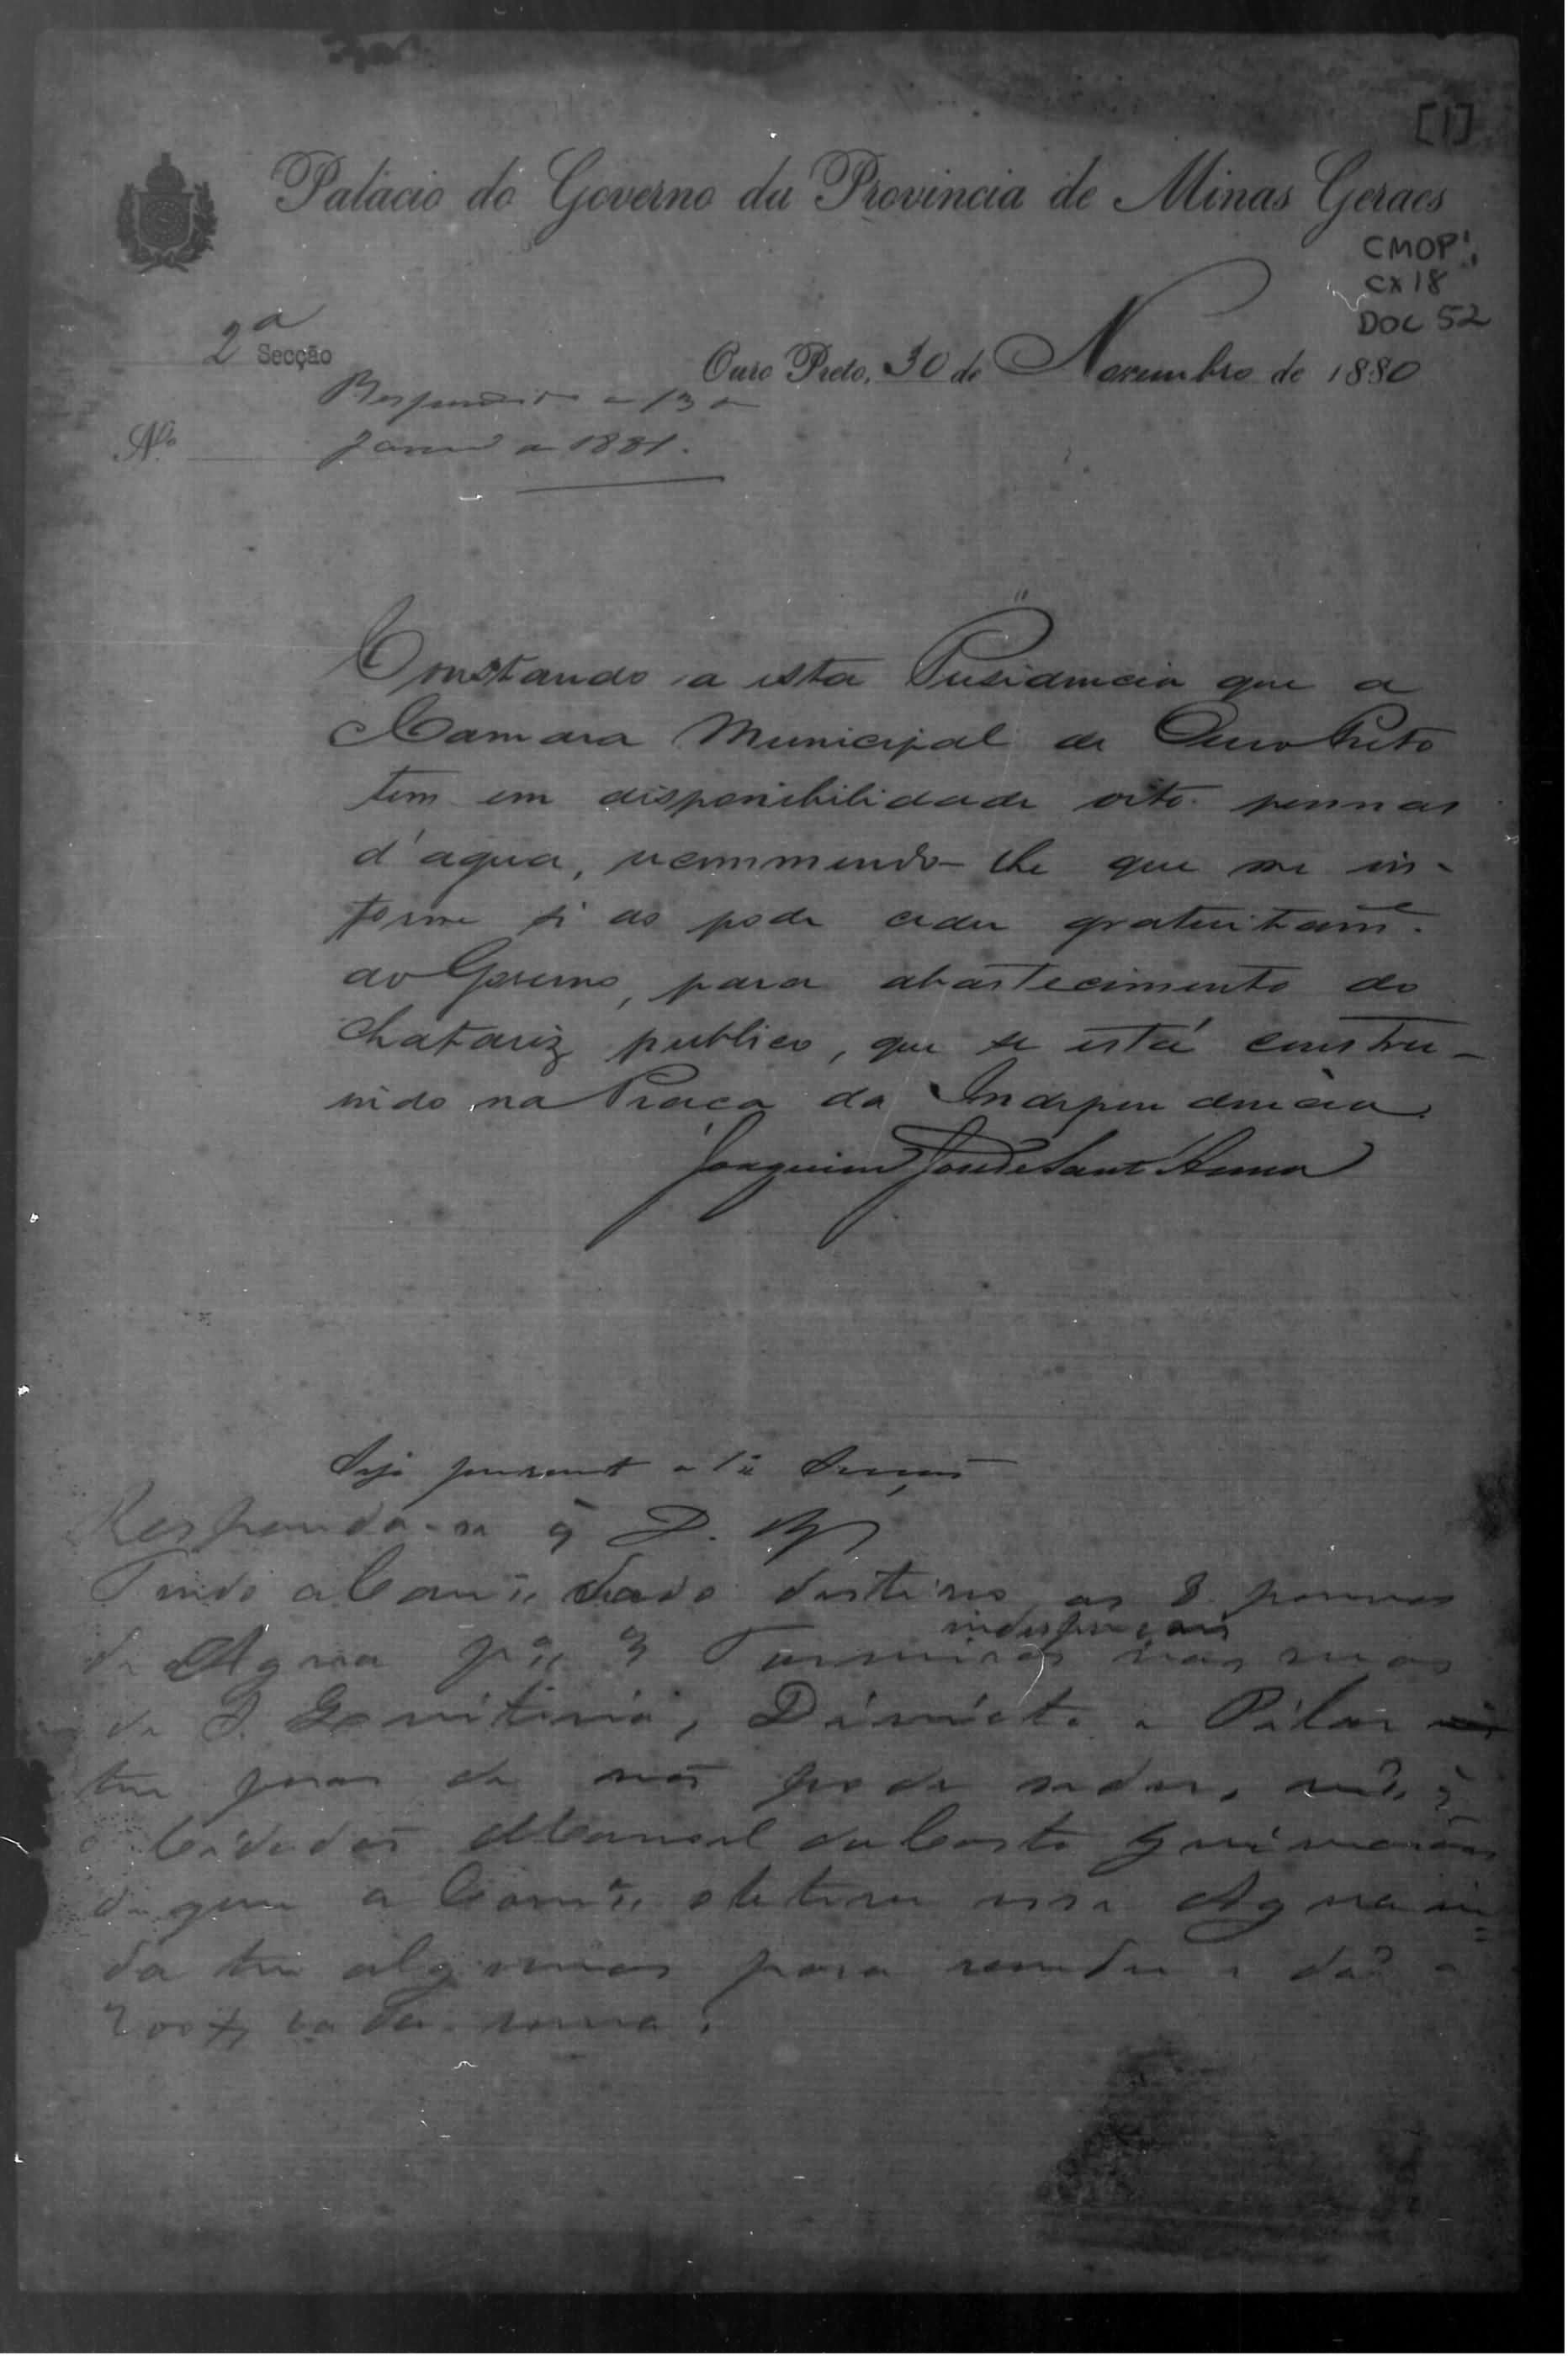 [1]
Palacio do Governo da Provincia de Minas Geraes
CMOP,
CX 18
DOC 52
2ª Secção
Ouro Preto, 30 de Novembro de 1880
Respondido a 13 de
N.º
Janro de 1881.
Constando a esta Presidencia que a
Camara Municipal de Ouro Preto
tem em disponibilidade oito pennas
d'agua, recommendo-lhe que me in-
forme si as pode ceder gratuitamᵉ.
ao Governo, para abastecimento do
chafariz publico, que se está constru-
indo na Praça da Independencia.
Joaquim José de Sant'Anna
Seja presente a 1ª Sessão
Responda-se q
Tendo a Camᵃ dado destino as 8 pennas
indispensaveis
de Agua pᵃ 3 Torneiras nas ruas
de S. Quiteria, Direita e Pilar
de não pode ceder,
Cidadão Manoel da Costa Guimarães
de quem a Camᵃ obteve essa Agua ain-
da tem algumas para vender
cada uma.